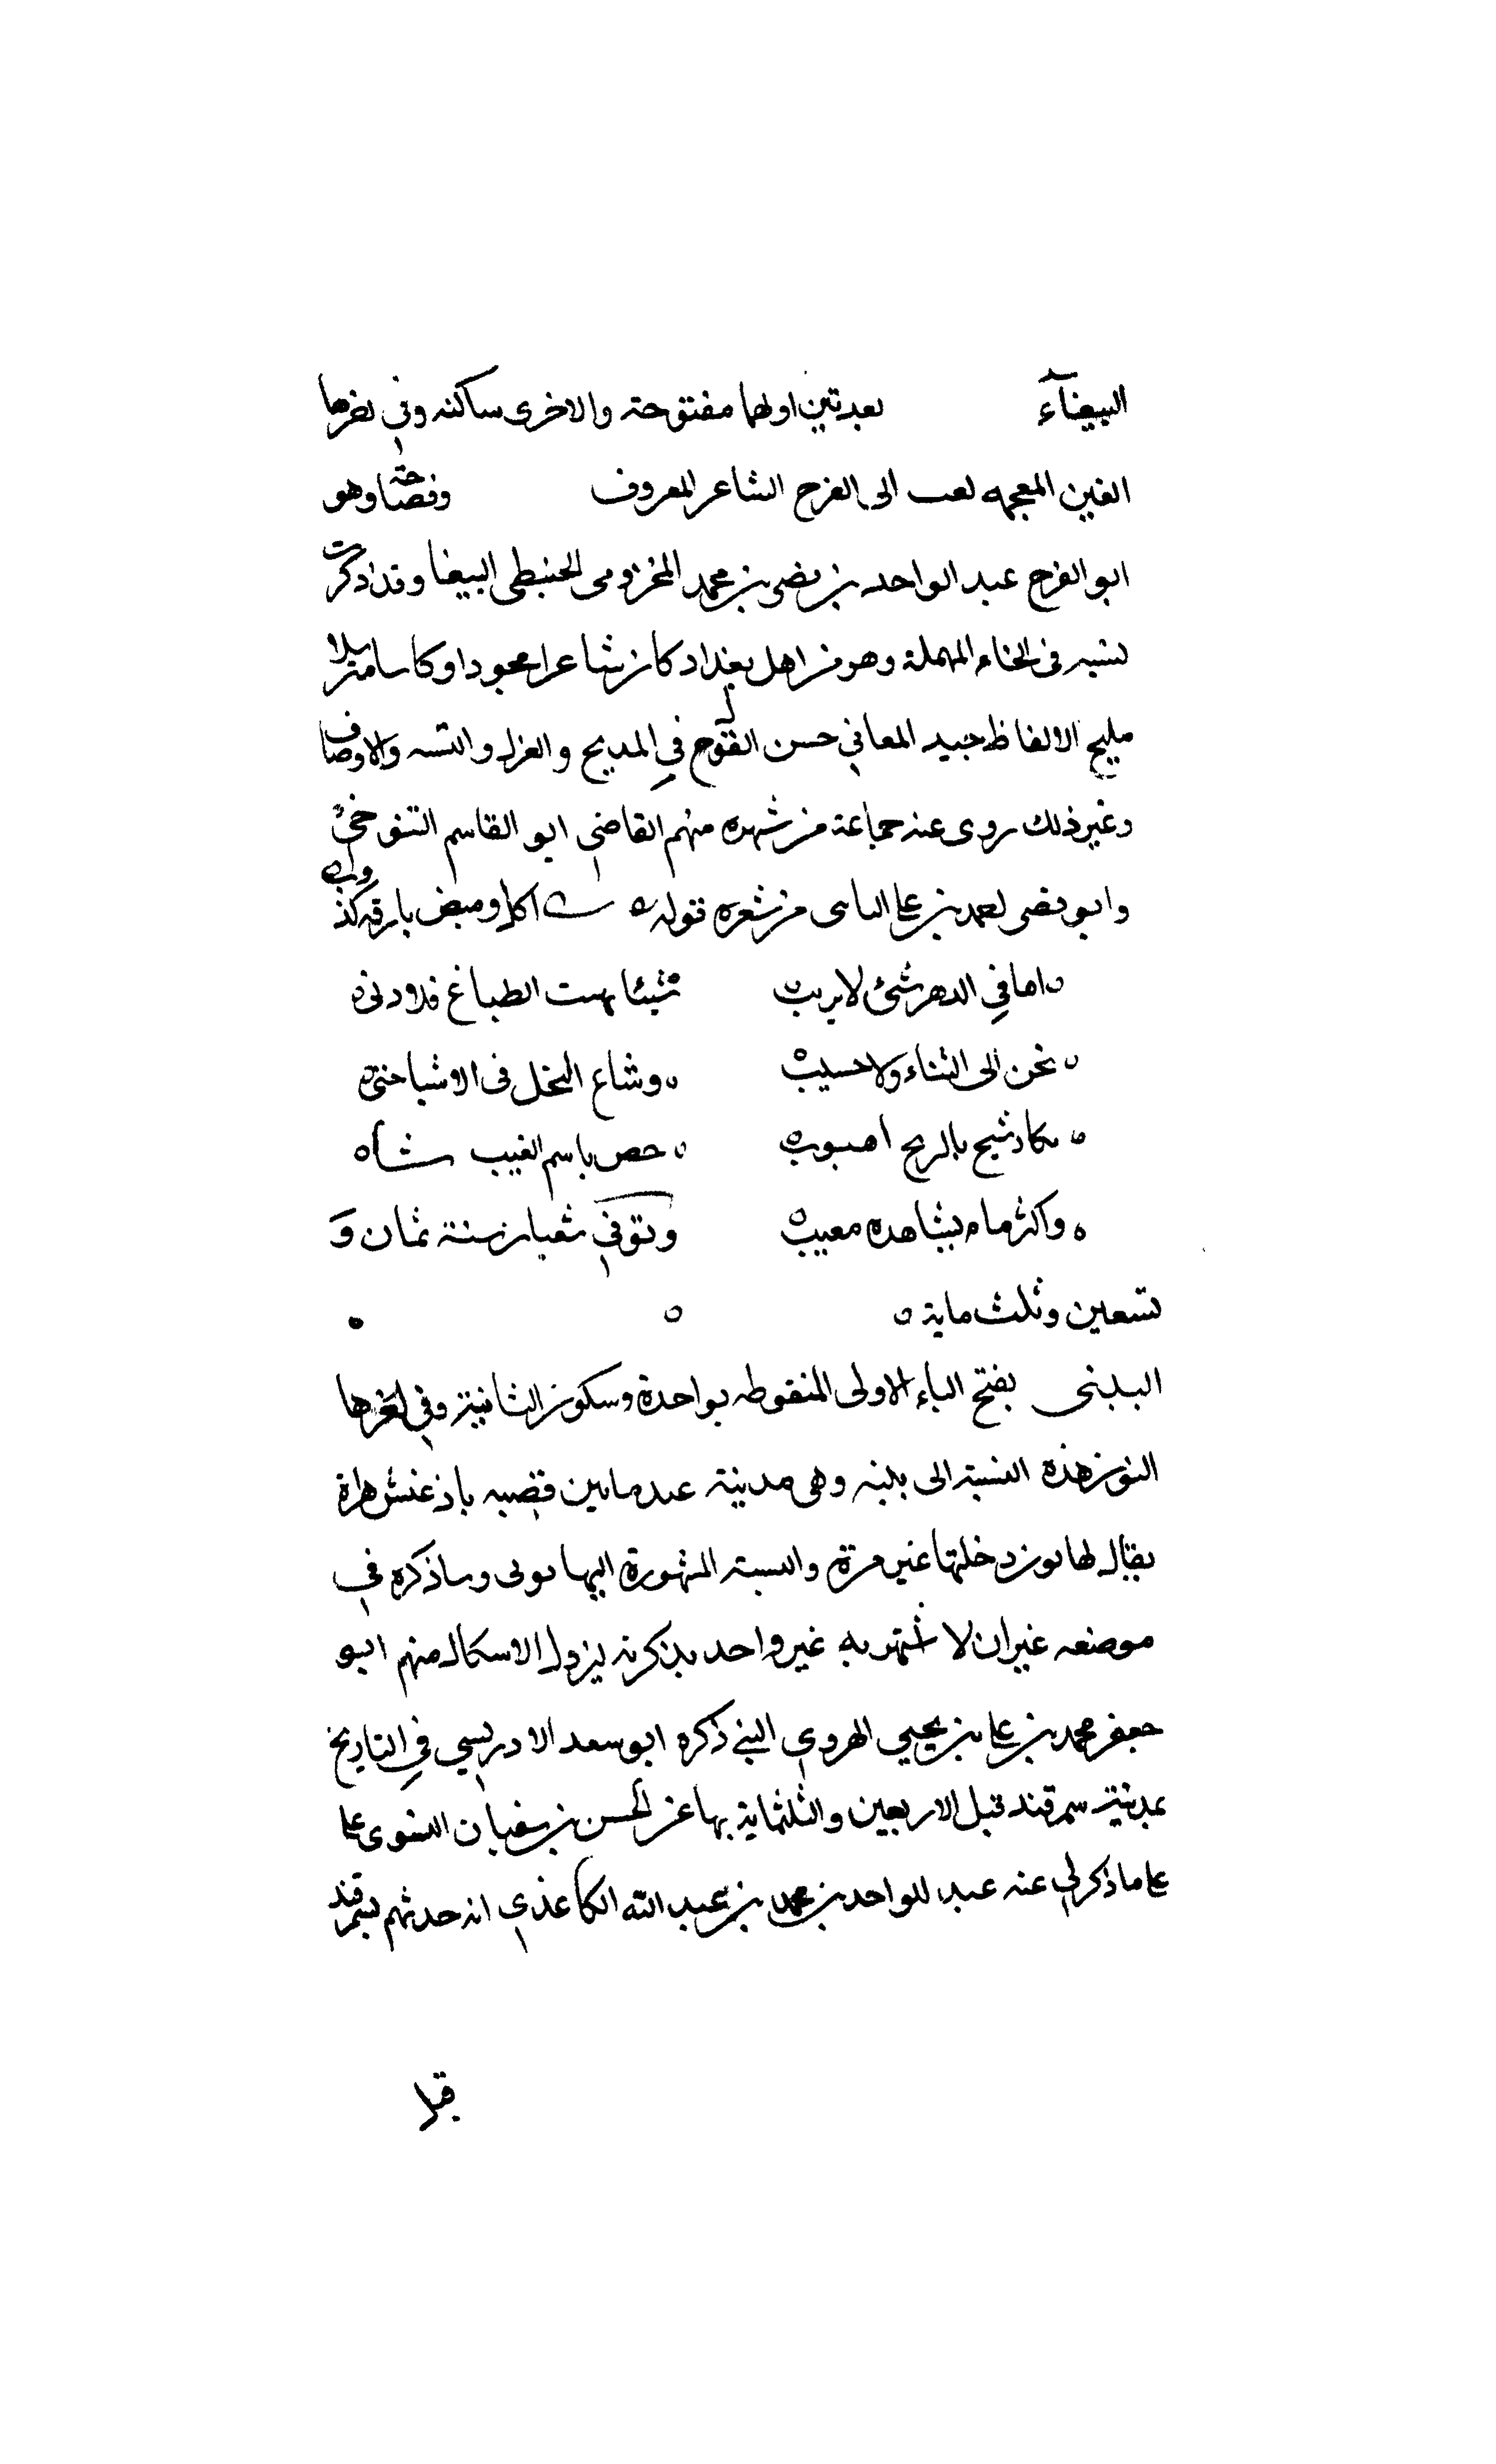 الببغآء بعدتين اولهما مفتوحة والاخرى ساكنه وفي اخرها
الغين المعجمه لقب ابى الفرج الشاعر المعروف وفصاحته وهو
ابو الفرج عبد الواحد بن نصر بن محمد المخزومى الحنبطى الببغا وقد ذكرت
نسبه فى الحاء المهملة وهو من اهل بغداد كان شاعرا مجودا وكاتبا مترسلا
مليح الالفاظ جيد المعاني حسن القول في المديح والغزل والتشبيه والاوصاف
وغير ذلك روى عنه جماعة من شهره منهم القاضي ابو القاسم التنوخي
وابو نصر احمد بن على الباسى من شعره قوله اكل وميض بارقه كذوب
اما في الدهر شئ لا يريب تشبثا بهت الطباع فلا دنى
نحن الى الثناء ولا حسيب وشاع البخل فى الاشيا حتى
يكاد شيح بالريح الهبوب خص باسم الغيب شاه
واكثر ما نشاهده معيب وتوفي شعبان سنة ثمان و
تسعين وثلث ماية
الببنى بفتح الباء الاولى المنقوطه بواحدة وسكون الثانية وفي اخرها
النون هذه النسبة الى ببنه وهى مدينة عند مابين قصبه باذغيس هراة
يقال لها بون دخلتها غير مرة والنسبة المشهورة اليها بونى وساذكره في
موضعه غير ان لا شتهر به غير واحد بذكرته ليزول الاسكال منهم ابو
جعفر محمد بن على بن يحيي الهروي الببني ذكره ابو سعد الادريسي في التاريخ
بمدينة سمرقند قبل الاربعين والثلثماية بها عن الحسن بن سفيان النسوى على
على ما ذكر لي عنه عبد الواحد بن محمد بن عبد الله الكاغذي انه حدثهم بسمرقند